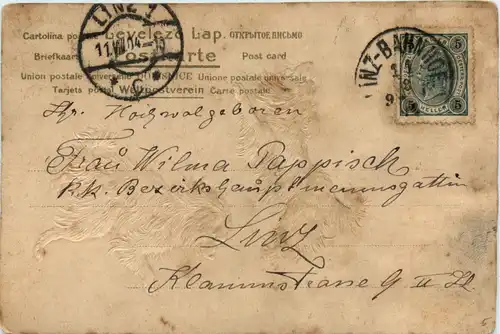 LINZ 1
Cartolina postale Levelező Lap. ОТКРЫТОЕ ПИСЬМО
Briefkaart Postkarte Post card
Union postale universelle Unione postale universale
Tarjeta postal Weltpostverein Carte postale
LINZ-BAHNHOF
5 5
HELLER
Ihr. Hochwolgeboren
Frau Wilma Pappisch
k.k. Bezirkshauptmannsgattin
Linz
Klammstrasse 9 II St